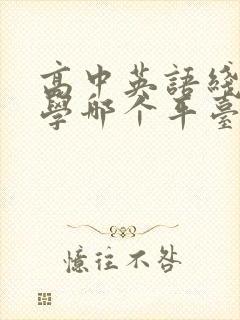 高中英語綫
學哪个平臺
憶往不咎